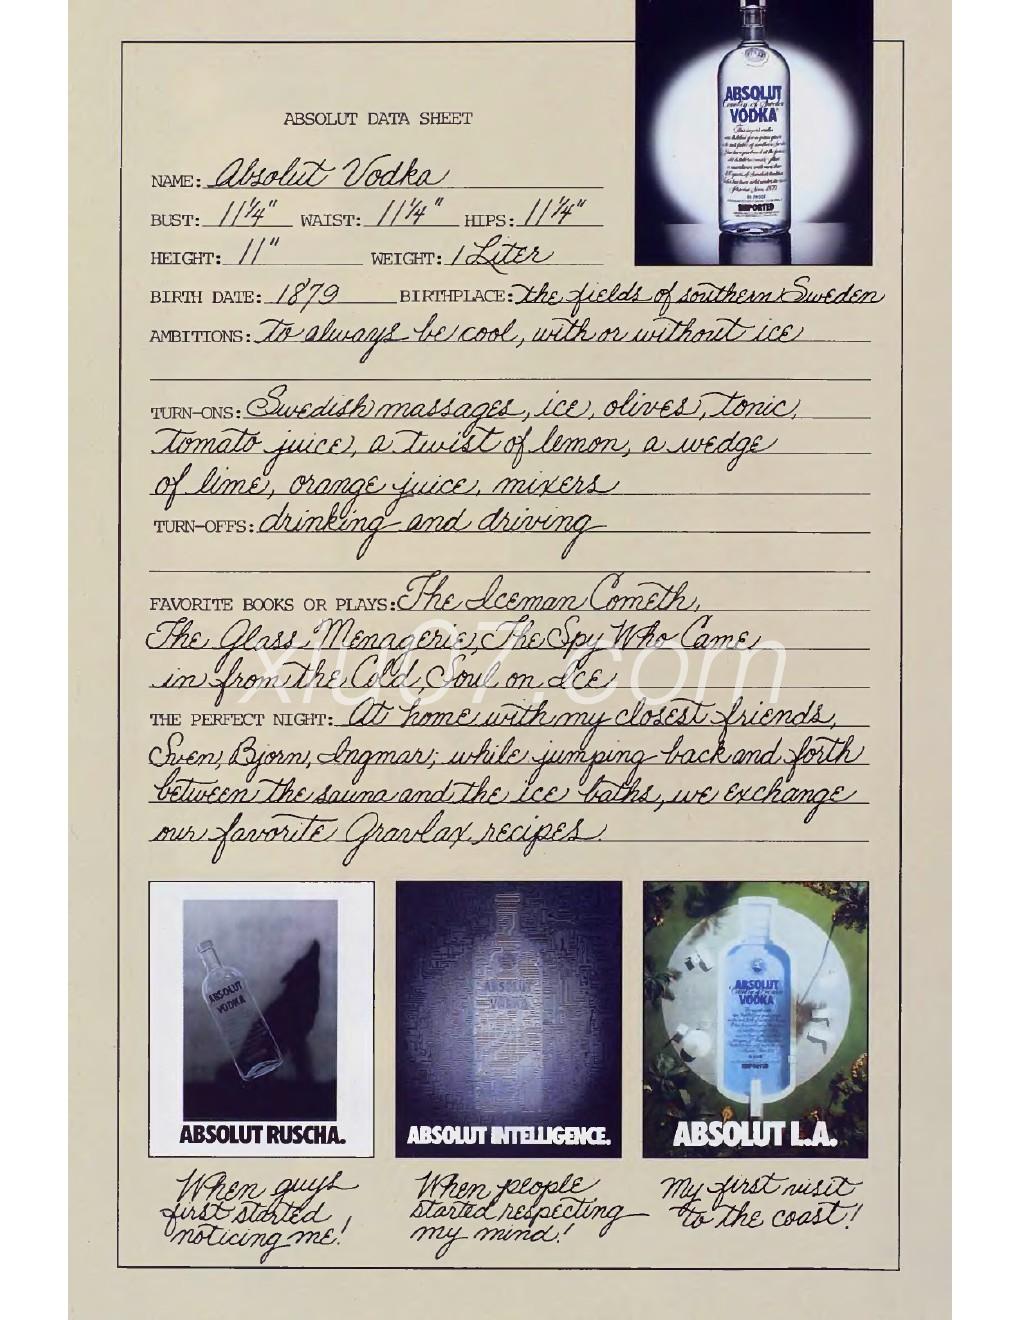 ABSOLUT
Country of Sweden
VODKA
IMPORTED
ABSOLUT DATA SHEET
NAME: Absolut Vodka
BUST: 11¼" WAIST: 11¼" HIPS: 11¼"
HEIGHT: 11" WEIGHT: 1 Liter
BIRTH DATE: 1879 BIRTHPLACE: the fields of southern Sweden
AMBITIONS: to always be cool, with or without ice
TURN-ONS: Swedish massages, ice, olives, tonic,
tomato juice, a twist of lemon, a wedge
of lime, orange juice, mixers
TURN-OFFS: drinking and driving
FAVORITE BOOKS OR PLAYS: The Iceman Cometh,
The Glass Menagerie, The Spy Who Came
in from the Cold, Soul on Ice
xiu07.com
THE PERFECT NIGHT: At home with my closest friends,
Sven, Bjorn, Ingmar; while jumping back and forth
between the sauna and the ice baths, we exchange
our favorite Gravlax recipes.
ABSOLUT
VODKA
ABSOLUT RUSCHA.
ABSOLUT
VODKA
ABSOLUT INTELLIGENCE.
ABSOLUT
VODKA
IMPORTED
ABSOLUT L.A.
When guys
first started
noticing me!
When people
started respecting
my mind!
My first visit
to the coast!